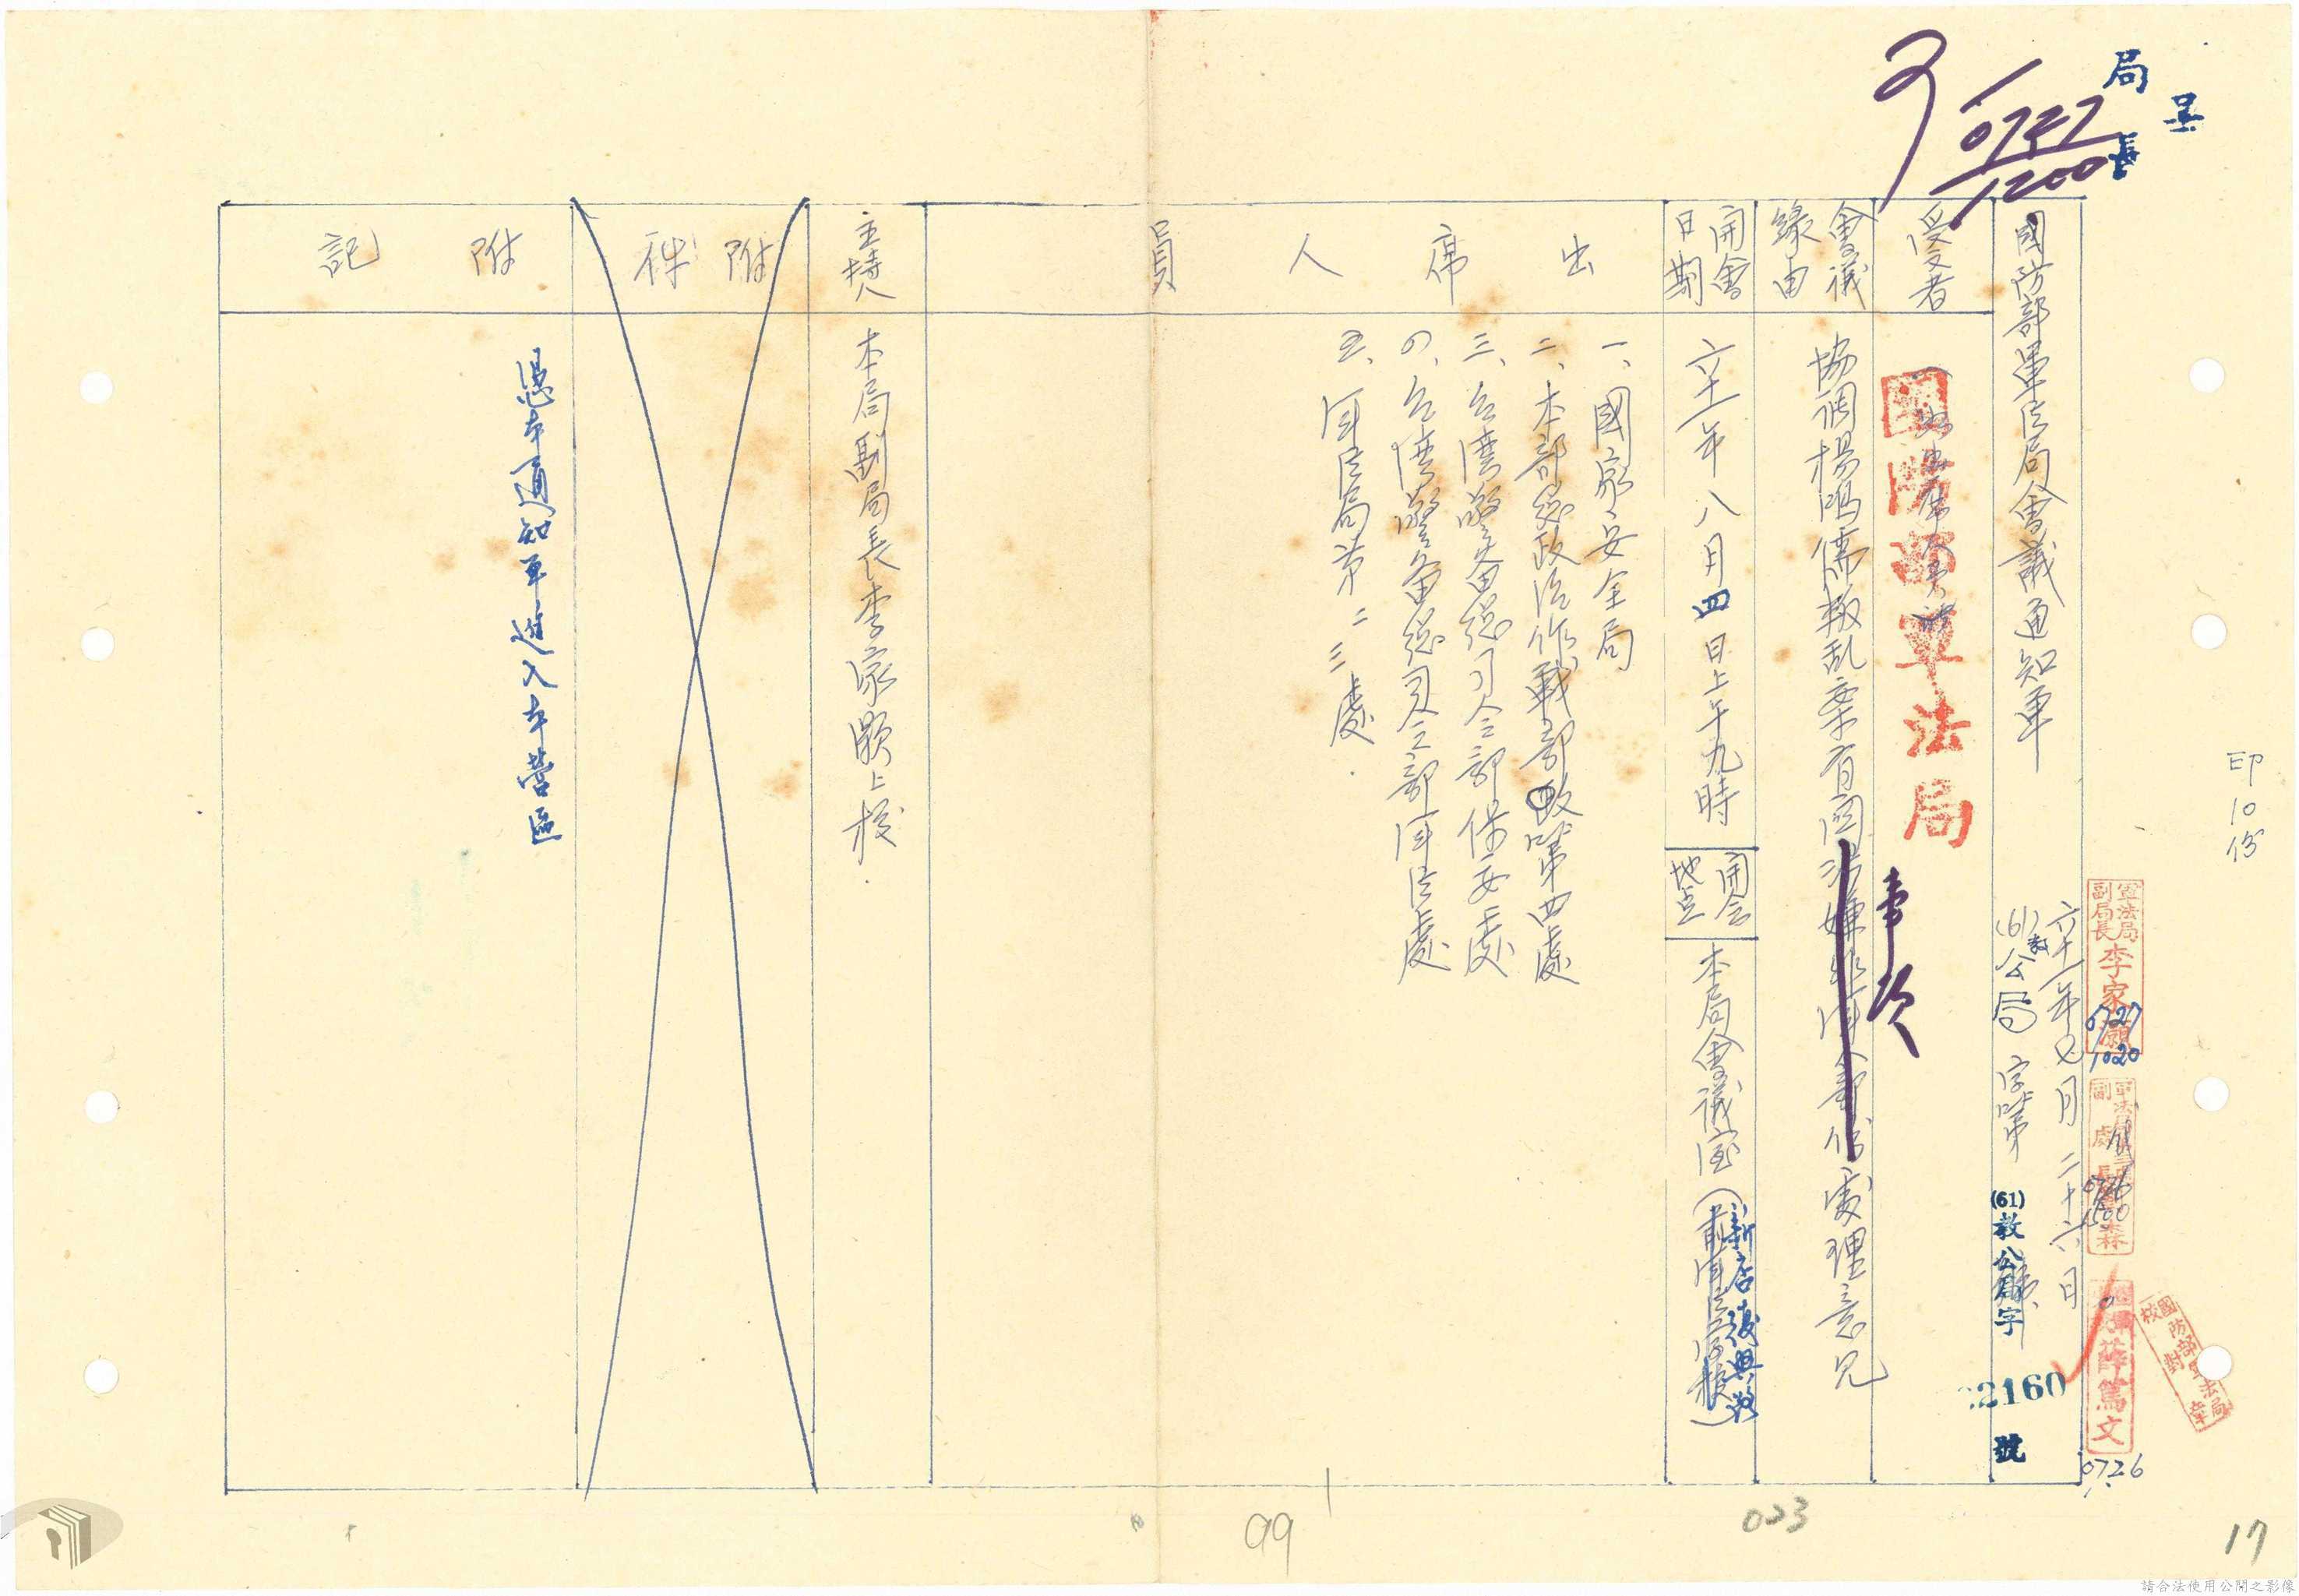 呈
局長
印10份
國防部軍法局會議通知單
六十一年七月二十六日
(61)教公局字第
(61)教公局字
2160
號
軍法局副局長李家願
0727
1020
薛篤文
0726
國防部軍法局校對章
0727
1200
受文者
國防部軍法局
會議緣由
協調楊鴻儒叛乱案有関事項處理意見
開會日期
六十一年八月四日上午九時
開会地点
本局會議室
(新店復興路)
出席人員
一、國家安全局
二、本部總政治作戰部政四處
三、台湾警备總司令部保安處
四、台湾警备總司令部軍法處
五、軍法局第二、三處
主持人
本局副局長李家願上校
附件
附記
憑本通知單進入本營區
99
033
17
請合法使用公開之影像